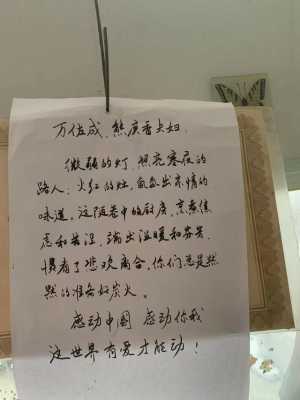 万佐成、熊庚香夫妇
微弱的灯,照亮寒夜的
路人;火红的灶,氤氲出亲情的
味道。这陋巷中的厨房,烹煮焦
虑和苦涩,端出温暖和芬芳,
惯看了悲欢离合,你们总是默
默的准备好炭火。
感动中国 感动你我
这世界有爱才转动!